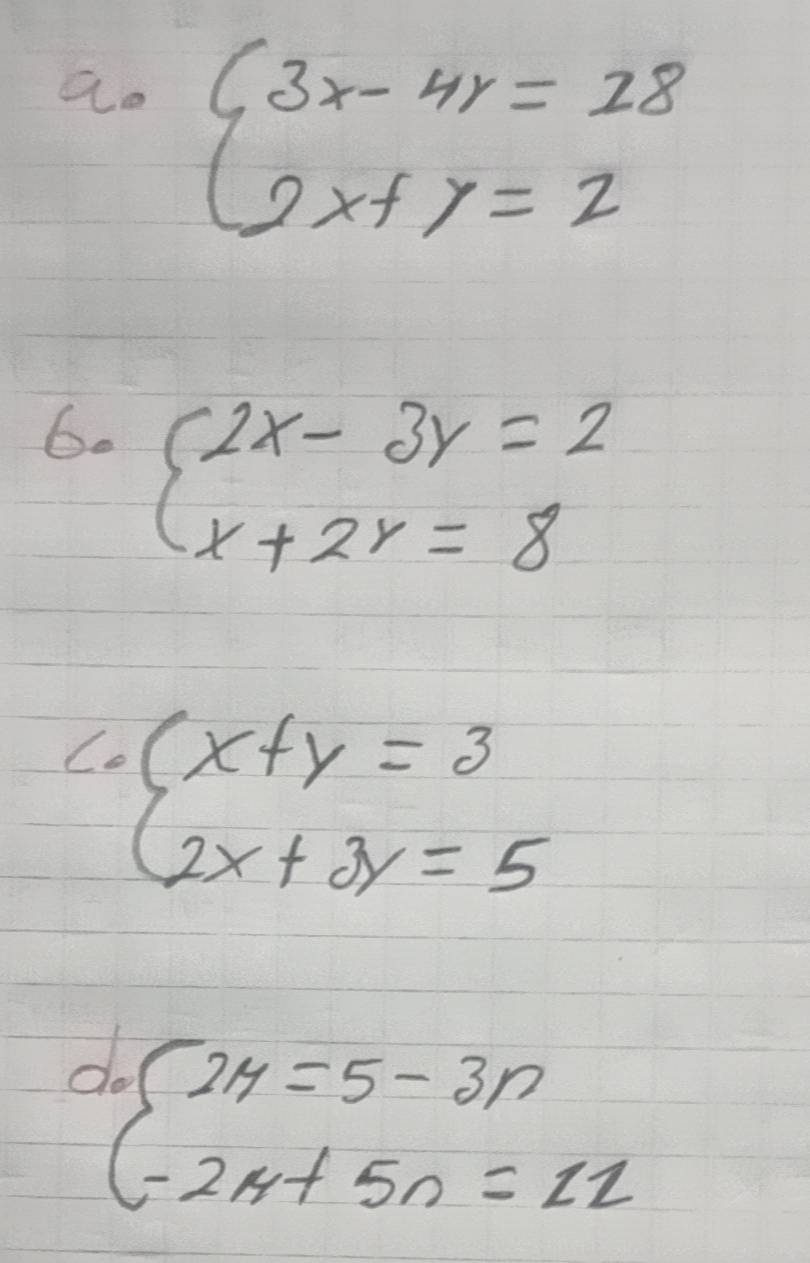 a. 3x - 4y = 18
2x + y = 1
b. 2x - 3y = 2
x + 2y = 8
c. x + y = 3
2x + 3y = 5
d. 2M = 5 - 3n
-2M + 5n = 11